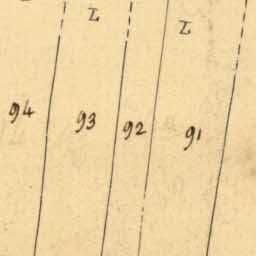 94 93 92 91